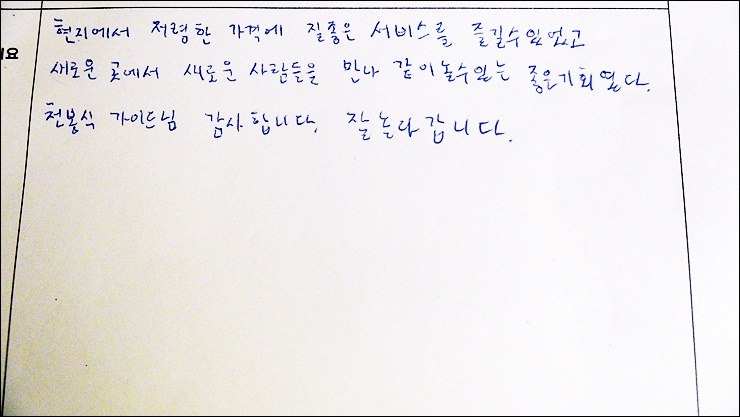 현지에서 저렴한 가격에 질좋은 서비스를 즐길수있었고
요
새로운 곳에서 새로운 사람들을 만나 같이놀수있는 좋은기회였다.
천봉식 가이드님 감사합니다. 잘놀다갑니다.